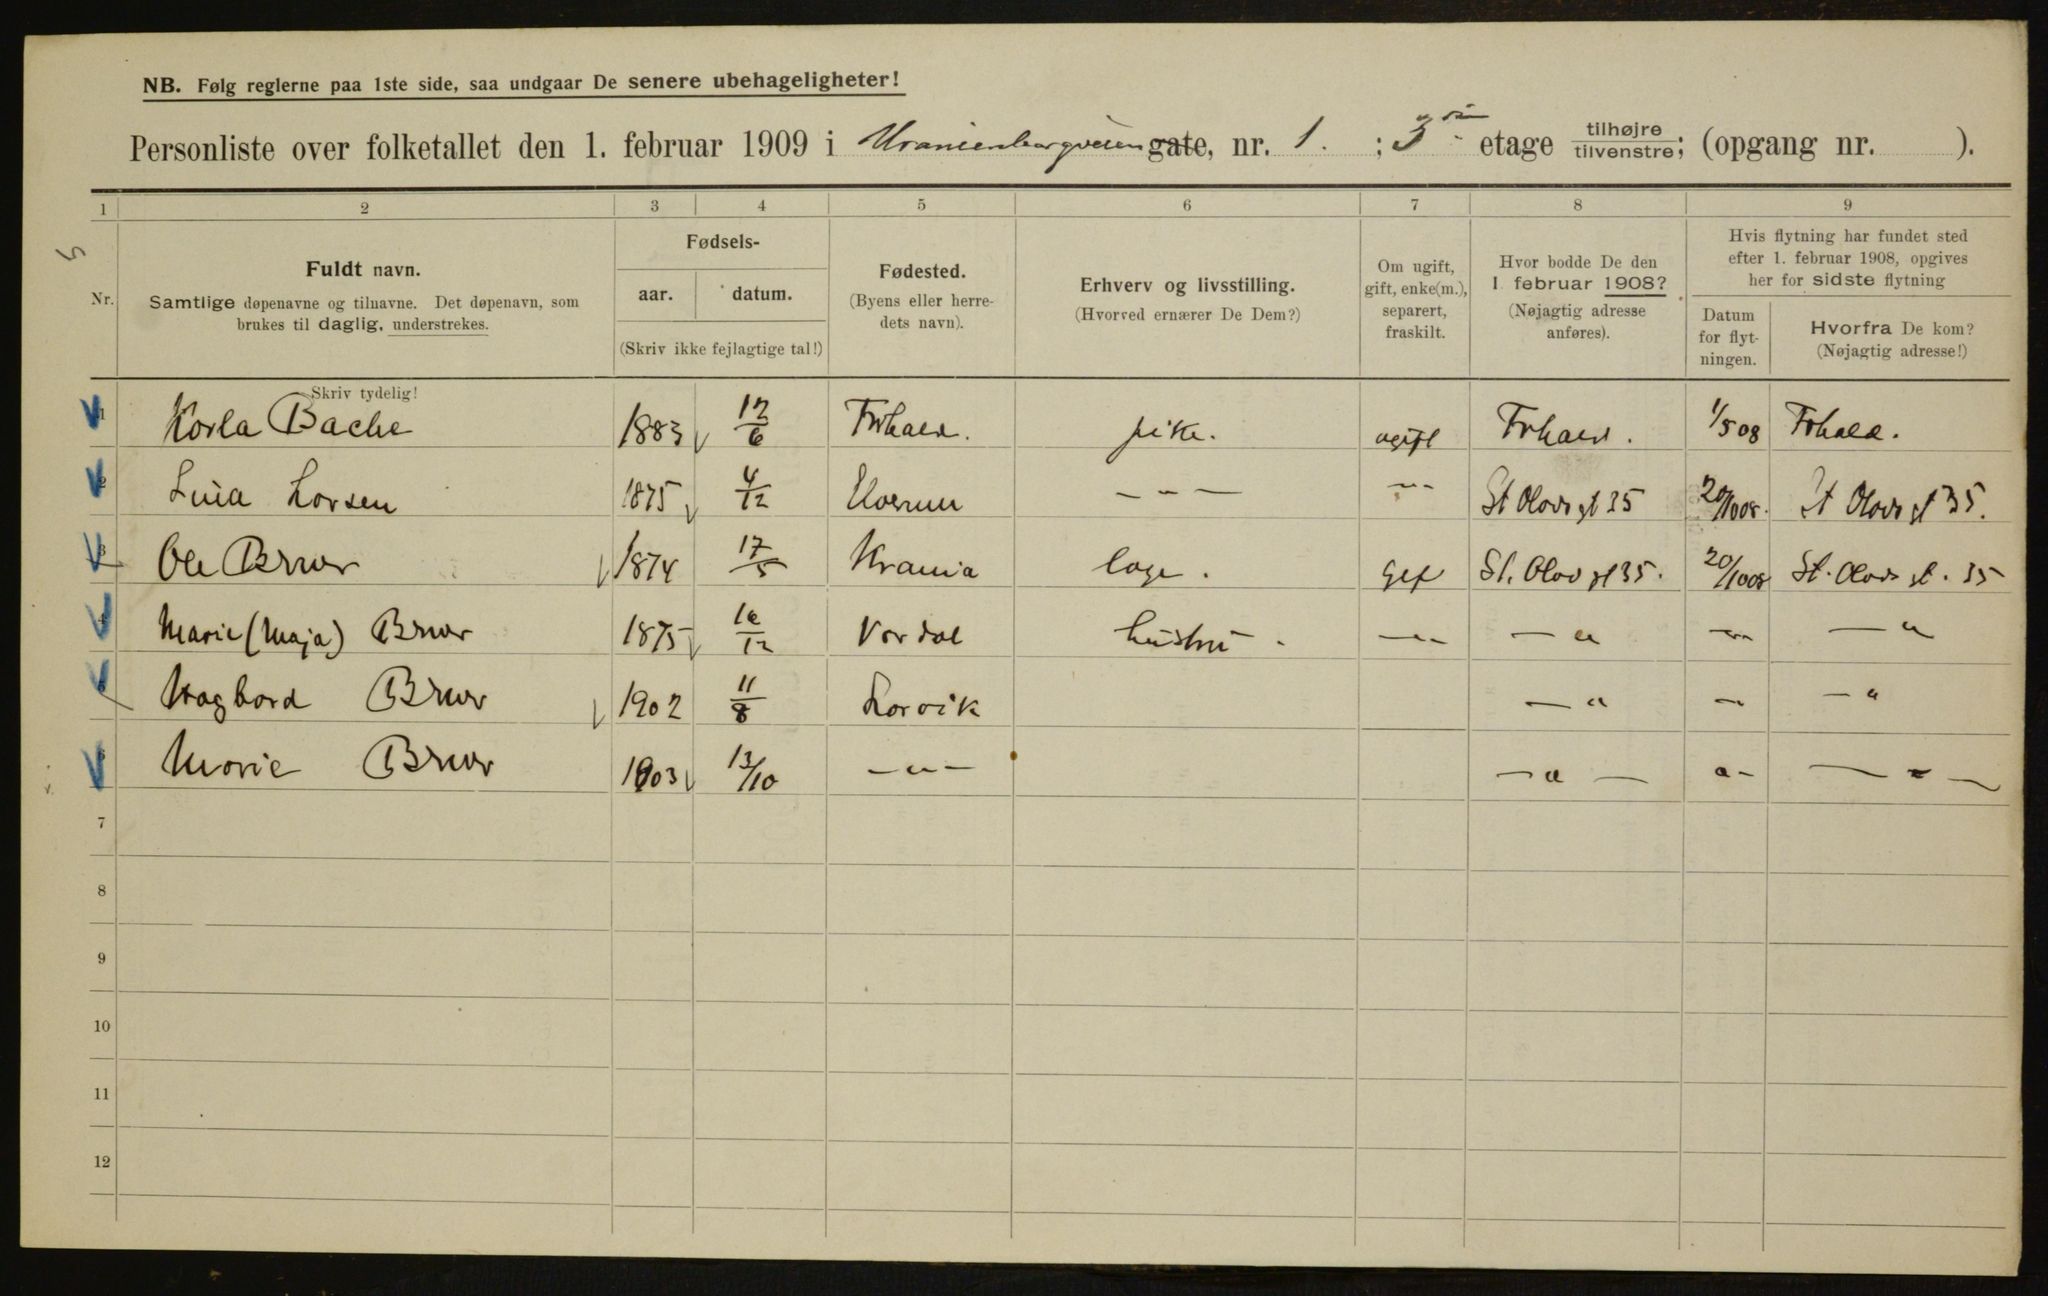 NB. Følg reglerne paa 1ste side, saa undgaar De senere ubehageligheter!
Personliste over folketallet den 1. februar 1909 i Uranienborgveien gate, nr. 1. ; 3 etage tilhøjre tilvenstre; (opgang nr. ).
1 2 3 4 5 6 7 8 9
Nr.
Fuldt navn.
Samtlige døpenavne og tilnavne. Det døpenavn, som
brukes til daglig, understrekes.
Skriv tydelig!
Fødsels-
aar. datum.
(Skriv ikke fejlagtige tal!)
Fødested.
(Byens eller herre-
dets navn).
Erhverv og livsstilling.
(Hvorved ernærer De Dem?)
Om ugift,
gift, enke(m.),
separert,
fraskilt.
Hvor bodde De den
1 februar 1908?
(Nøjagtig adresse
anføres).
Hvis flytning har fundet sted
efter 1. februar 1908, opgives
her for sidste flytning
Datum
for flyt-
ningen.
Hvorfra De kom?
(Nøjagtig adresse!)
1 Karla Bache 1883 12/6 Frhald. pike. ugift Frhald. 1/5 08 Frhald.
2 Lina Larsen 1875 4/12 Elverum — " — — " — St Olavs gt 35 20/10 08. St Olavs gt 35.
3 Ole Bruor 1874 17/5 Krania læge. gift St. Olavs gt 35. 20/10 08 St. Olavs gt. 35
4 Marie (Maja) Bruor 1875 16/12 Vardal hustru — " — — " — " — — "
5 Hagbard Bruor 1902 11/8 Larvik — " — " — "
6 Marie Bruor 1903 13/10 — " — — " — " — — " —
7
8
9
10
11
12